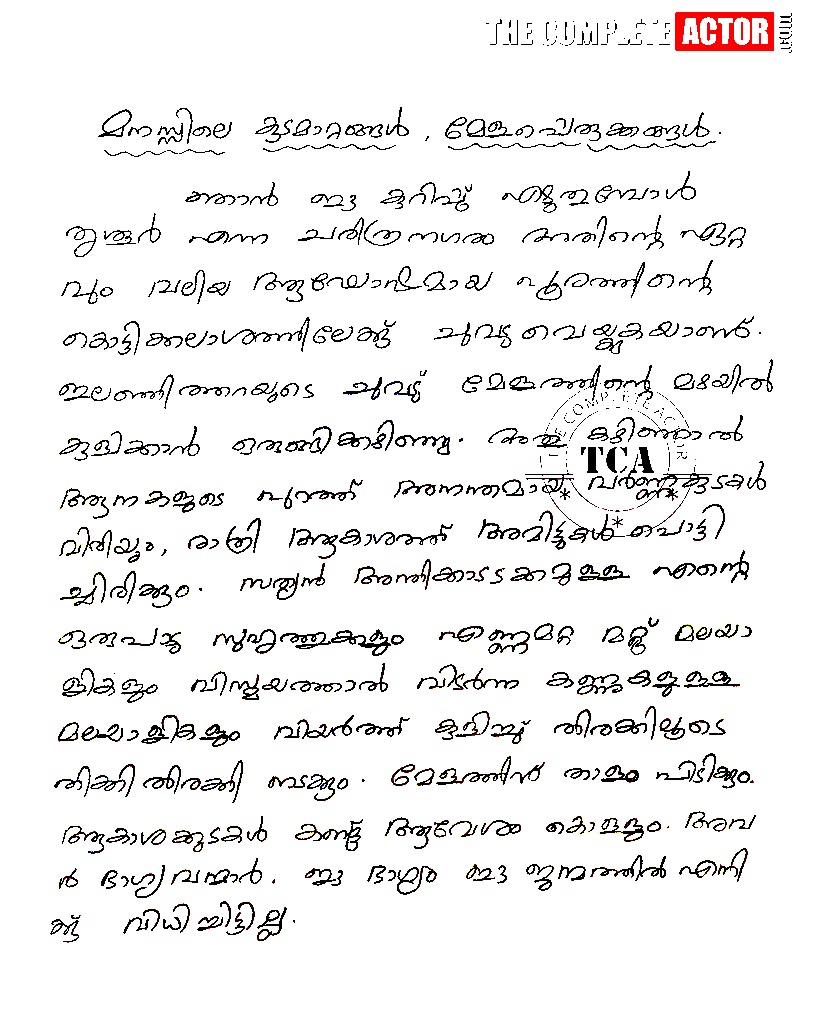 THE COMPLETE ACTOR
മനസ്സിലെ കുടമാറ്റങ്ങൾ, മേളപ്പെരുക്കങ്ങൾ.
ഞാൻ ഈ കുറിപ്പ് എഴുതുമ്പോൾ
തൃശൂർ എന്ന ചരിത്രനഗരം അതിന്റെ ഏറ്റ
വും വലിയ ആഘോഷമായ പൂരത്തിന്റെ
കൊട്ടിക്കലാശത്തിലേക്ക് ചുവടു വെയ്ക്കുകയാണ്.
ഇലഞ്ഞിത്തറയുടെ ചുവട് മേളത്തിന്റെ മഴയിൽ
കുളിക്കാൻ ഒരുങ്ങിക്കഴിഞ്ഞു. അതു കഴിഞ്ഞാൽ
ആനകളുടെ പുറത്ത് അനന്തമായ വർണ്ണക്കുടകൾ
വിരിയും, രാത്രി ആകാശത്ത് അമിട്ടുകൾ പൊട്ടി
ച്ചിരിക്കും. സത്യൻ അന്തിക്കാടടക്കമുള്ള എന്റെ
ഒരുപാടു സുഹൃത്തുക്കളും എണ്ണമറ്റ മറ്റ് മലയാ
ളികളും വിസ്മയത്താൽ വിടർന്ന കണ്ണുകളുള്ള
മലയാളികളും വിയർത്ത് കുളിച്ച് തിരക്കിലൂടെ
തിക്കിത്തിരക്കി നടക്കും. മേളത്തിന് താളം പിടിക്കും.
ആകാശക്കുടകൾ കണ്ട് ആവേശം കൊള്ളും. അവ
ർ ഭാഗ്യവന്മാർ. ഈ ഭാഗ്യം ഈ ജന്മത്തിൽ എനി
ക്ക് വിധിച്ചിട്ടില്ല.
THE COMPLETE ACTOR
TCA